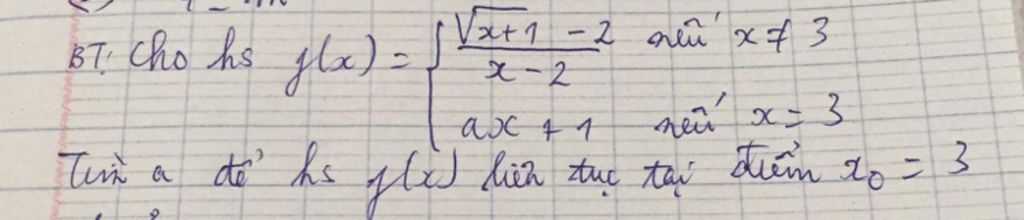 BT: Cho hs y(x) = { (√x+1 - 2)/(x - 2) nếu x ≠ 3
ax + 1 nếu x = 3
Tìm a để hs y(x) liên tục tại điểm x₀ = 3